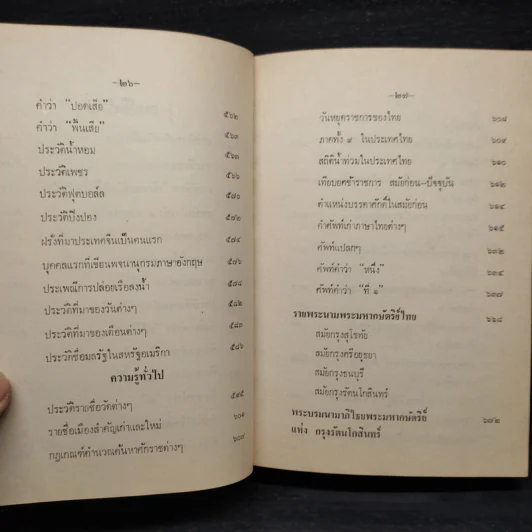 —๒๖—
คำว่า “ปอดเสีย” ๕๖๒
คำว่า “ฟั่นเสีย” ๕๖๓
ประวัติน้ำหอม ๕๖๓
ประวัติเพชร ๕๖๖
ประวัติฟุตบอล์ล ๕๗๐
ประวัติปิงปอง ๕๗๒
ฝรั่งที่มาประเทศจีนเป็นคนแรก ๕๗๔
บุคคลแรกที่เขียนพจนานุกรมภาษาอังกฤษ ๕๗๖
ประเพณีการปล่อยเรือลงน้ำ
ประวัติที่มาของวันต่างๆ ๕๘๒
ประวัติที่มาของเดือนต่างๆ ๕๘๓
ประวัติชื่อมลรัฐในสหรัฐอเมริกา ๕๘๕
ความรู้ทั่วไป
ประวัติรายชื่อวัดต่างๆ ๕๙๕
รายชื่อเมืองสำคัญเก่าและใหม่ ๖๐๑
กฎเกณฑ์คำนวณค้นหาศักราชต่างๆ ๖๐๗
—๒๗—
วันหยุดราชการของไทย ๖๐๘
ภาคทั้ง ๙ ในประเทศไทย ๖๐๙
สถิติน้ำท่วมในประเทศไทย ๖๑๐
เทียบยศข้าราชการ สมัยก่อน—ปัจจุบัน ๖๑๒
ตำแหน่งบรรดาศักดิ์ในสมัยก่อน ๖๑๔
คำศัพท์เก่าภาษาไทยต่างๆ ๖๑๕
ศัพท์แปลกๆ
ศัพท์คำว่า “หนึ่ง” ๖๓๕
ศัพท์คำว่า “ที่ ๑” ๖๓๗
รายพระนามพระมหากษัตริย์ไทย ๖๖๘
สมัยกรุงสุโขทัย
สมัยกรุงศรีอยุธยา
สมัยกรุงธนบุรี
สมัยกรุงรัตนโกสินทร์
พระบรมนามาภิไธยพระมหากษัตริย์ ๖๗๒
แห่ง กรุงรัตนโกสินทร์